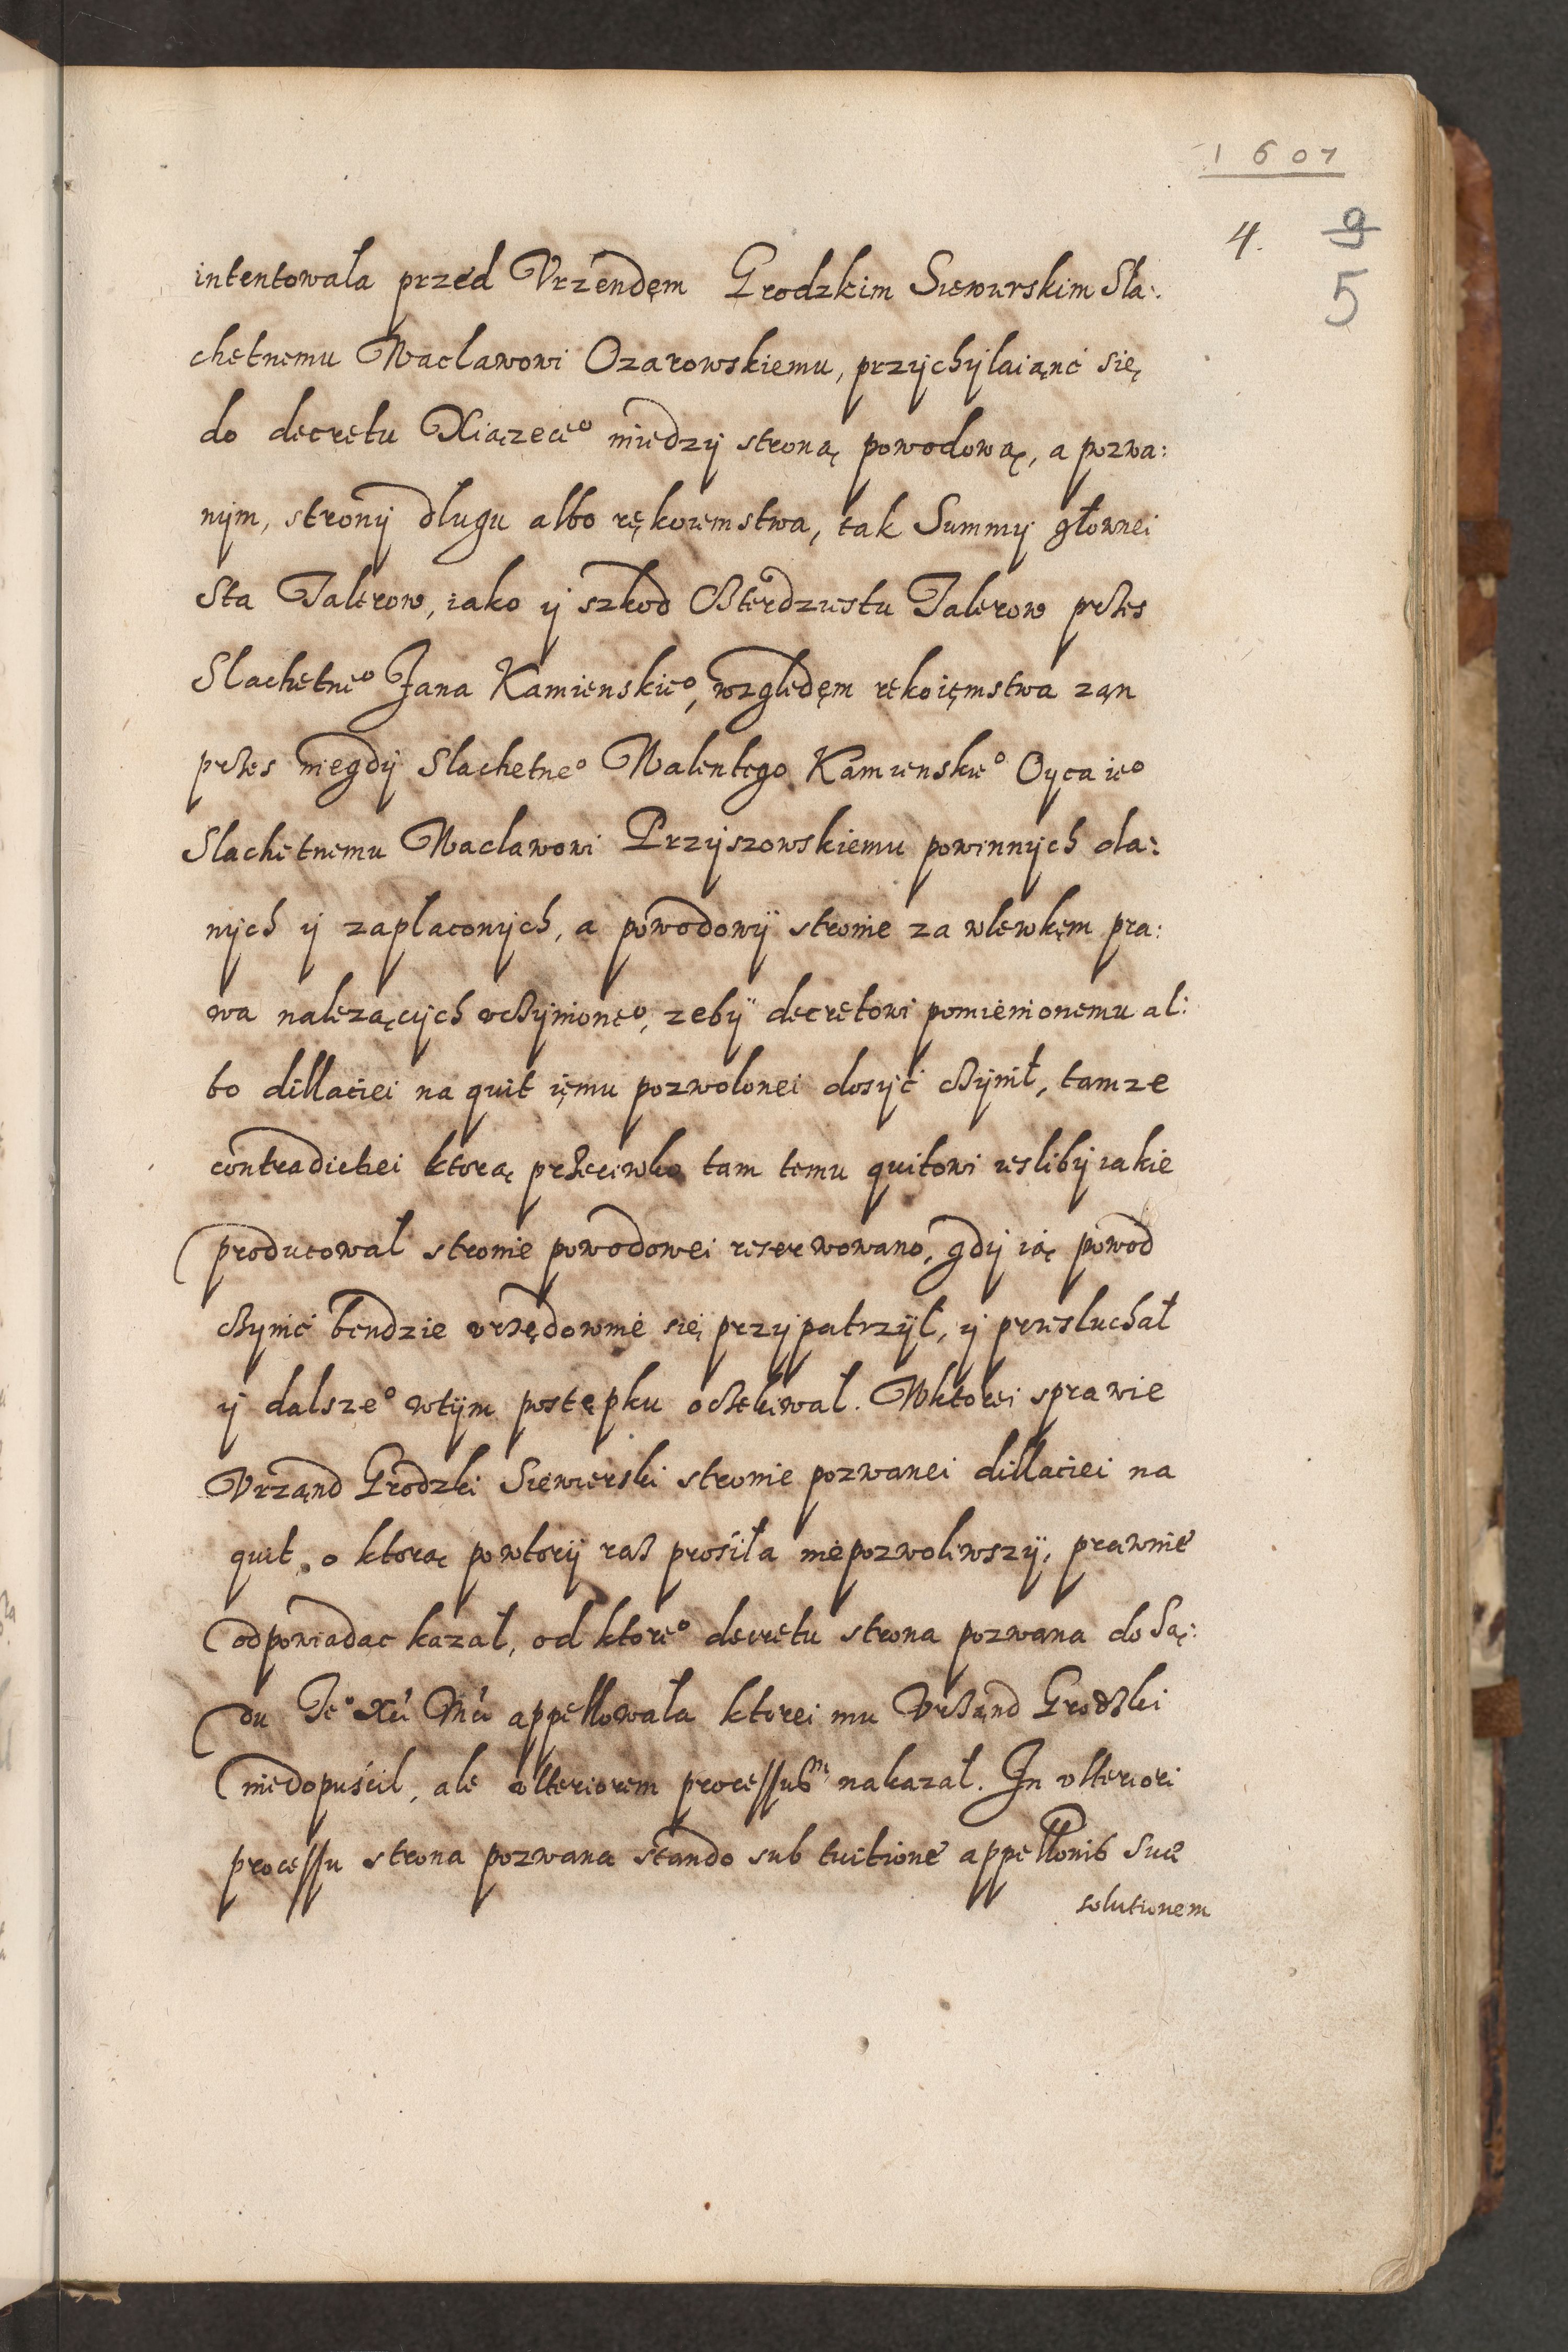 1607
4. 9
5
intentowała przed Vrzendęm Grodzkim Siewierskim Sla:
chetnemu Wacławowi Ozarowskiemu, przychijlaiąnc się
do decretu Xiązęce° miedzij stroną powodową, a pozwa:
nijm, stronij dlugu albo rękoiemstwa, tak Summij głownei
Sta Talerow, iako ij szkod Czterdziestu Talerow przes
Slachetne° Jana Kamienskie°, względęm rękoięmstwa zan
przes niegdij Slachetne° Walentego Kamienskie° Oyca ie°
Slachetnemu Wacławowi Przijszowskiemu powinnijch da:
nijch ij zapłaconijch, a powodowij stronie za wlewkęm pra:
wa nalezącijch vczijnione°, zebij decretowi pomienionemu al:
bo dillaciei na quit ięmu pozwolonei dosijć czijnił, tamze
contradictiei ktorą przeciwko tam temu quitowi iesliby iakie
producował stronie powodowei reserwowano, gdij ią powod
czijnić bendzie vrzędownie się przijpatrzijł, ij przesłuchał
ij dalsze° wtijm postępku oczekiwał. Wktorei sprawie
Vrząnd Grodzki Siewierski stronie pozwanei dillaciei na
quit, o ktorą powtorij raz prosiła niepozwoliwszij, prawnie
odpowiadac kazał, od ktore° decretu strona pozwana do Są:
du Je° Xci Mci appellowała ktorei mu Vrząnd Grodzki
niedopuścił, ale vlteriorem processum nakazał. In vlteriori
processu strona pozwana stando sub tuitione appellonis suæ
solutionem